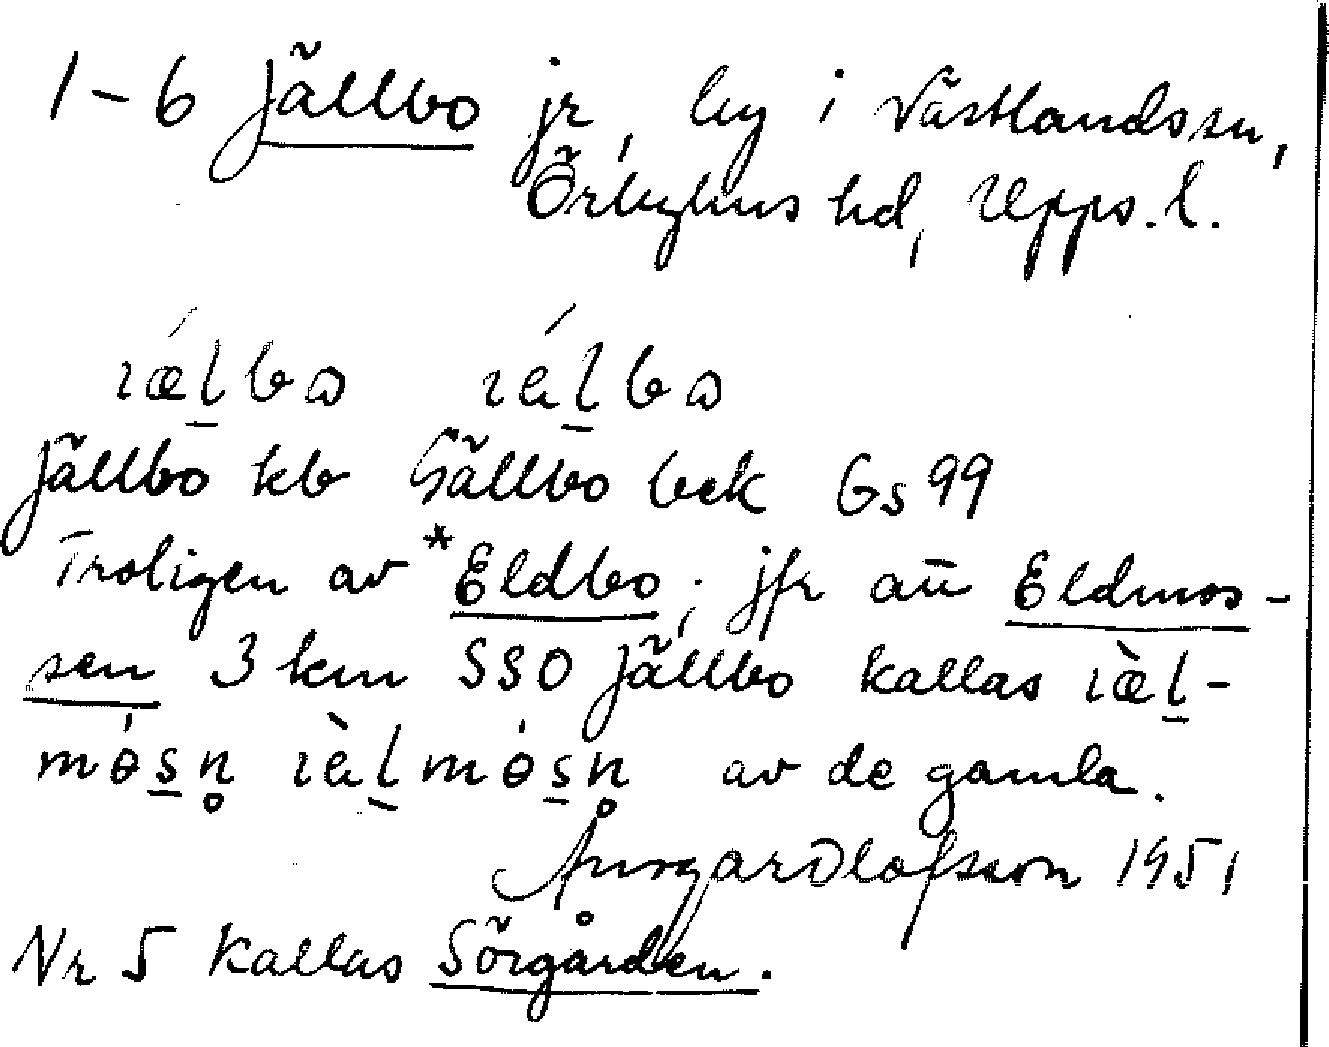 1-6 Jällbo jr, by i Västlands sn,
Örbyhus hd, Upps. l.
ıǽḻbo ıáḻbo
Jällbo kb Gällbo bek Gs 99
Troligen av *Eldbo; jfr att Eldmos-
sen 3 km SSO Jällbo kallas ıæ̀ḻ-
mósṇ ıàḻmósṇ av de gamla.
Olofsson 1951
Nr 5 kallas Sörgården.